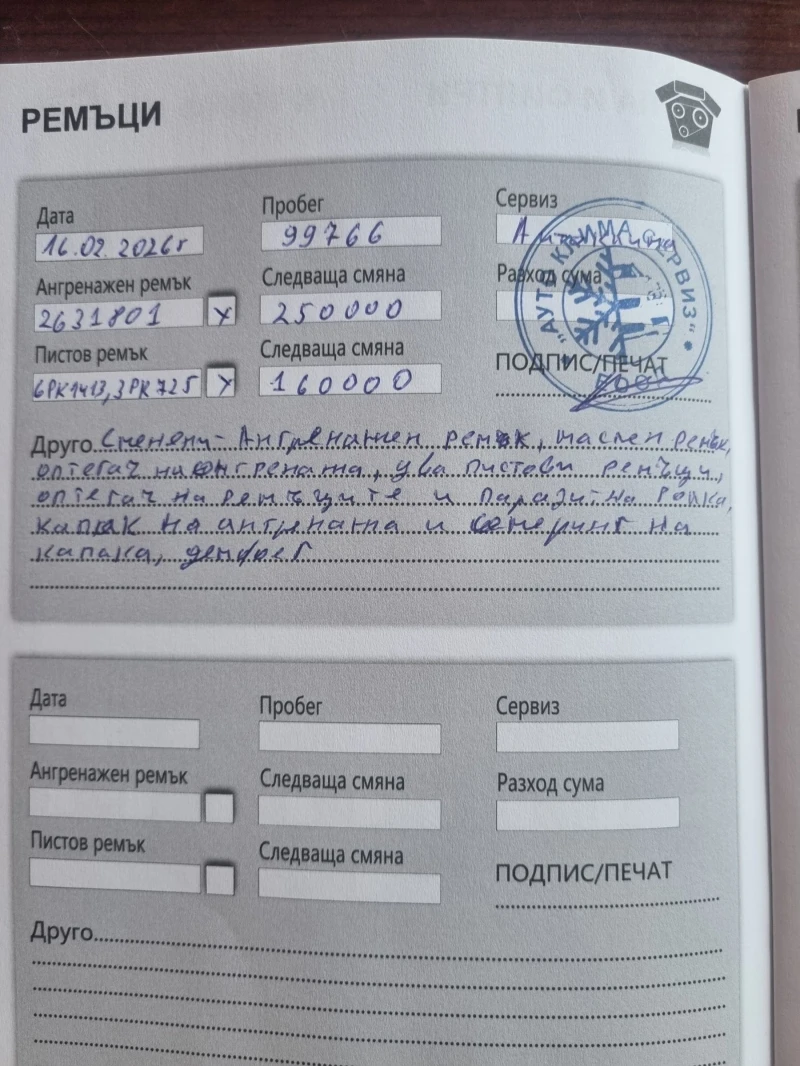 РЕМЪЦИ
Дата
Пробег
Сервиз
16.02.2026г
99766
Ангренажен ремък
Следваща смяна
Разход сума
2631801
250000
Пистов ремък
Следваща смяна
ПОДПИС/ПЕЧАТ
6PK1413, 3PK725
160000
"АУТО КЛИМА СЕРВИЗ"
Друго Сменени - Ангренажен ремък, маслен ремък,
оптегач на ангренажа, два пистови ремъци,
оптегач на ремъците и паразитна ролка,
капак на ангренажа и семеринг на
капака, демфер
Дата
Пробег
Сервиз
Ангренажен ремък
Следваща смяна
Разход сума
Пистов ремък
Следваща смяна
ПОДПИС/ПЕЧАТ
Друго